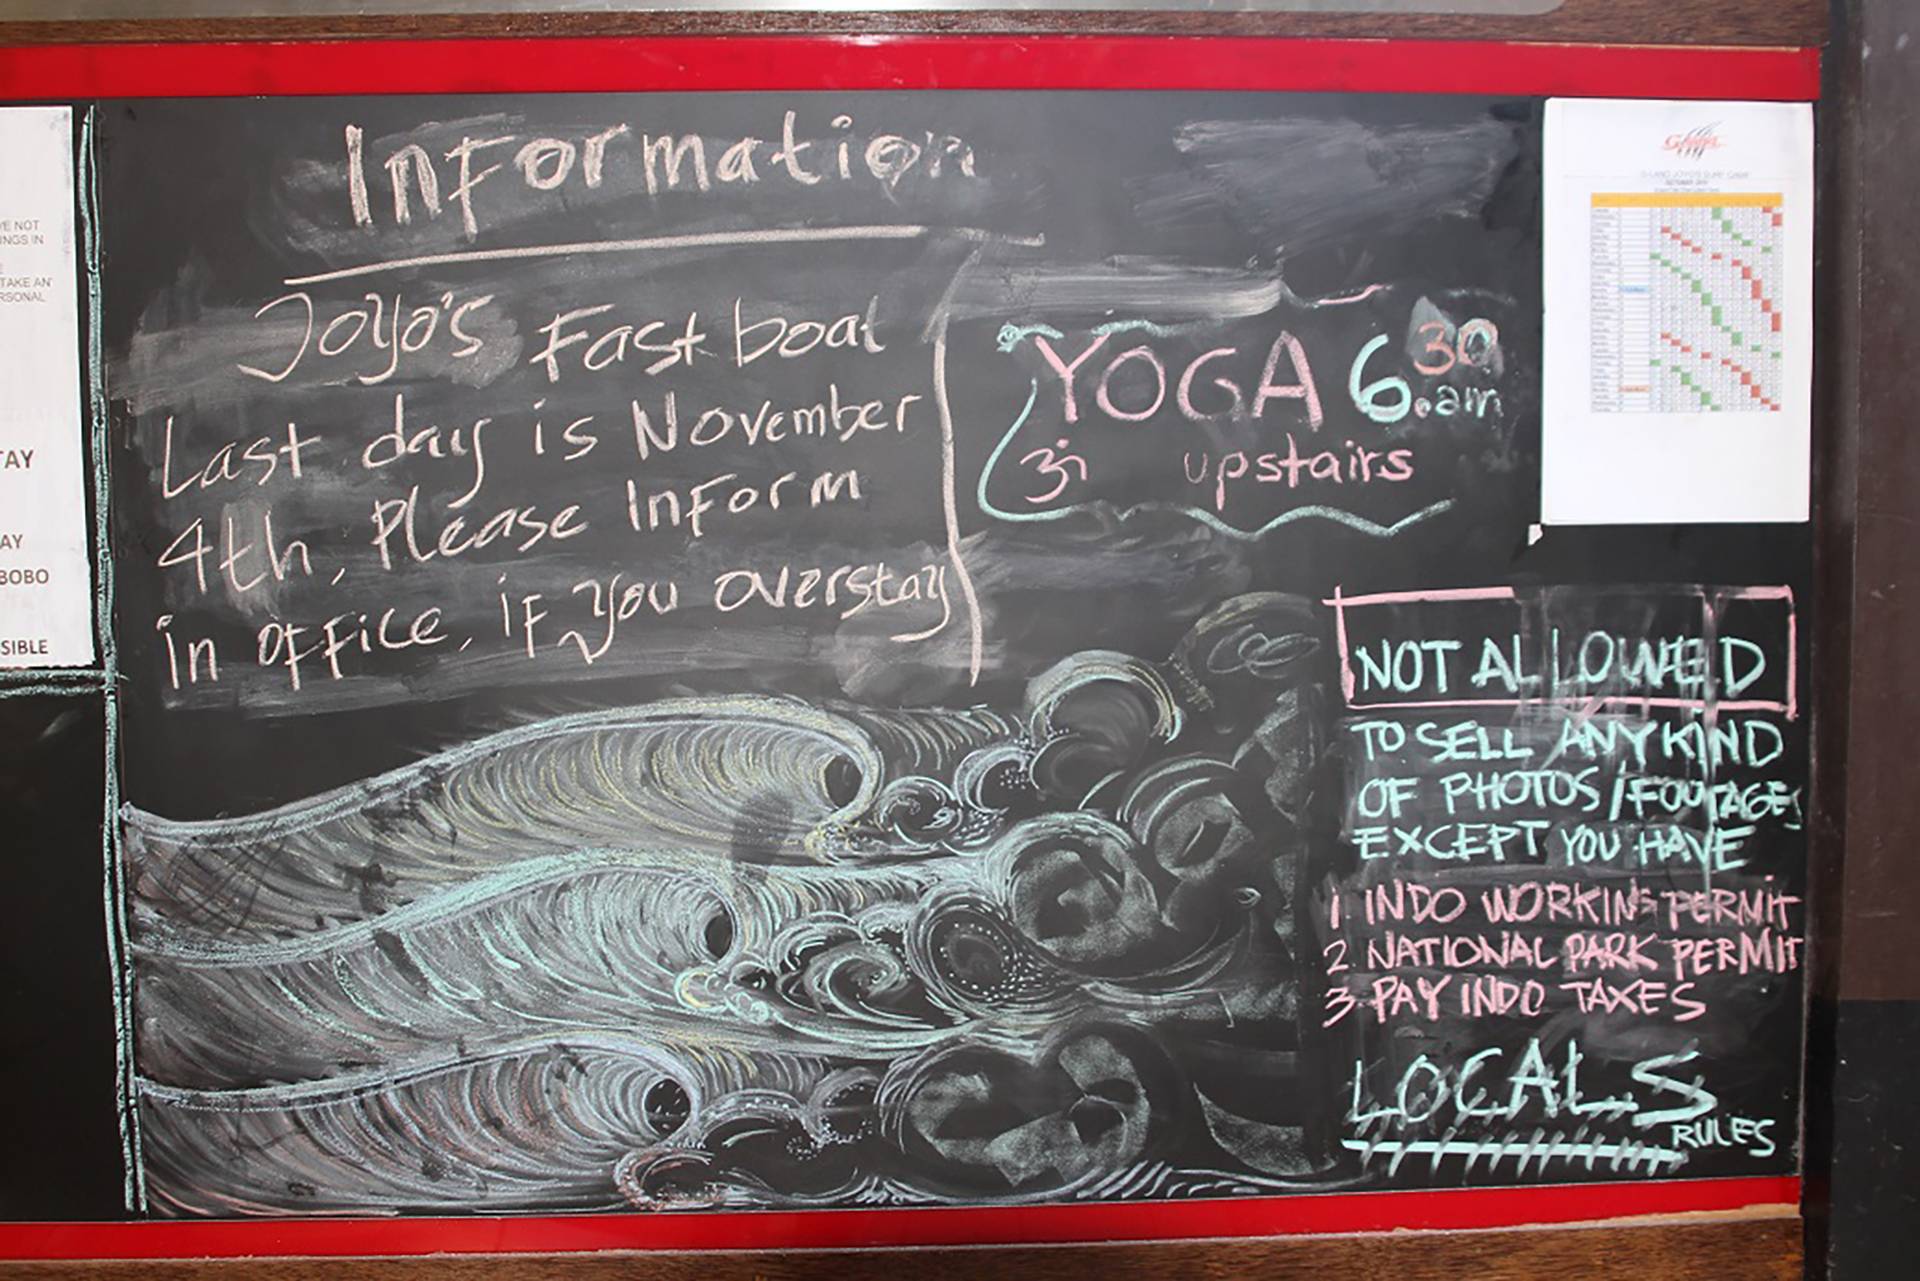 E NOT
INGS IN
TAKE AN
RSONAL
TAY
AY
BOBO
SIBLE
Information
Joyo's Fast boat
Last day is November
4th, Please Inform
in office, if you overstay
YOGA 6.30 am
upstairs
NOT ALLOWED
TO SELL ANY KIND
OF PHOTOS/FOOTAGES
EXCEPT YOU HAVE
1. INDO WORKING PERMIT
2. NATIONAL PARK PERMIT
3. PAY INDO TAXES
LOCALS
RULES
G-LAND JOYO'S SURF CAMP